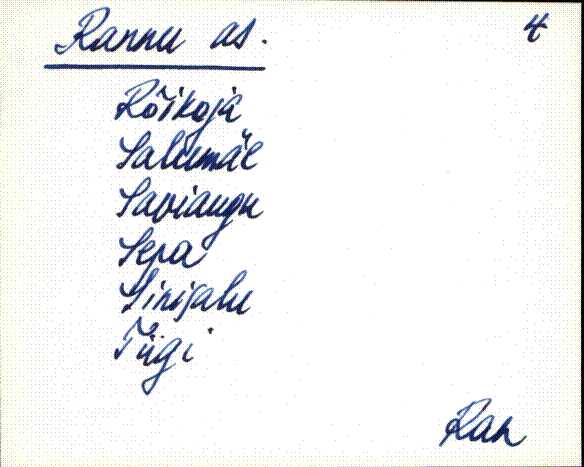 Rannu as. 4
Rõikoja
Salumäe
Saviaugu
Sepa
Sinijalu
Tiigi
Ran